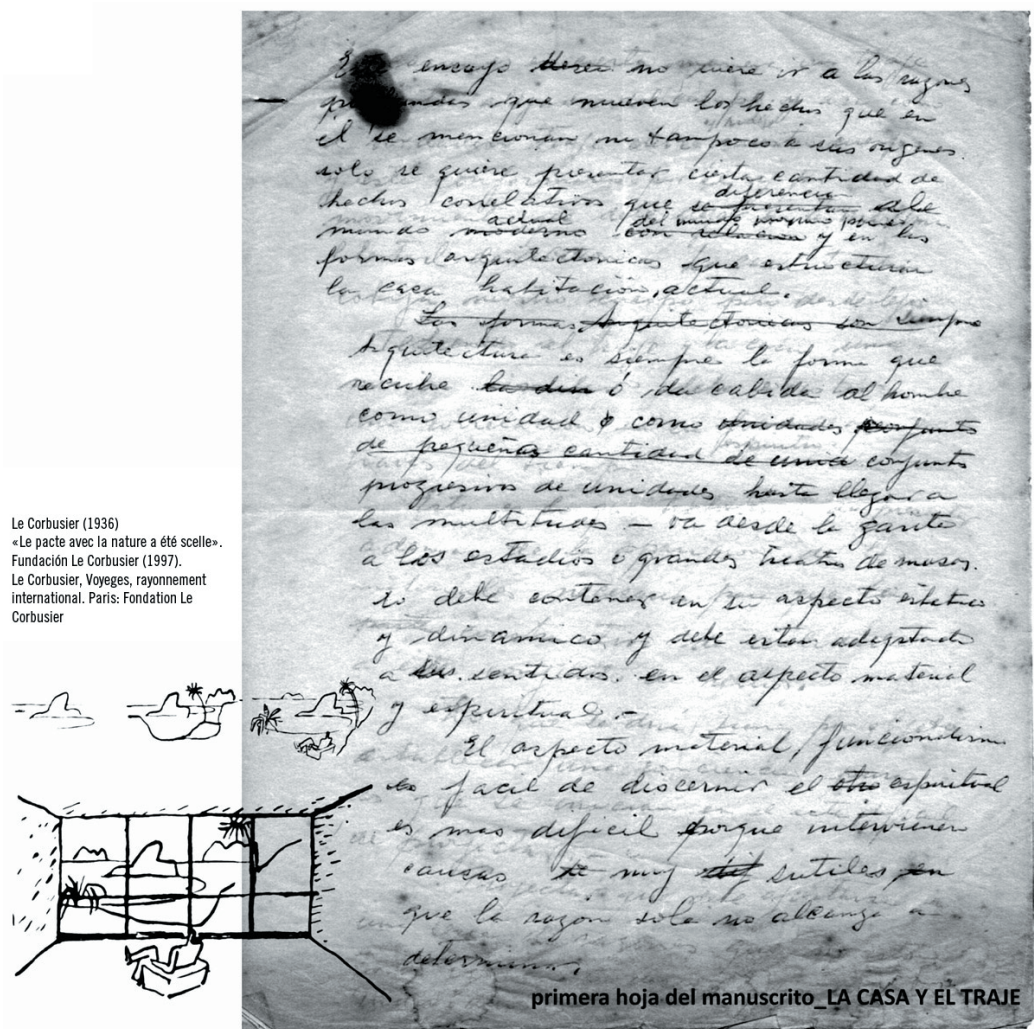 Le Corbusier (1936)
«Le pacte avec la nature a été scelle».
Fundación Le Corbusier (1997).
Le Corbusier, Voyeges, rayonnement
international. Paris: Fondation Le
Corbusier
ensayo no quiere ir a las razones
que mueven los hechos que en
el se mencionan ni tampoco a sus origenes.
solo se quiere presentar cierta cantidad de
hechos correlativos que se presentan
diferencia
mundo moderno con relacion y en las
actual del mundo
formas arquitectonicas que estructuran
la casa habitación, actual.
Las formas Arquitectonicas son siempre
Arquitectura es siempre la forma que
recibe ó da cabida al hombre
como unidad ó como unidades conjunto
de pequeñas cantidad de conjunto
progresivos de unidades hasta llegar a
las multitudes — va desde la garita
a los estadios o grandes teatros de masas.
lo debe contener en su aspecto estatico
y dinamico y debe estar adaptado
a sus sentidos. en el aspecto material
y espiritual. —
El aspecto material,
es facil de discernir el otro espiritual
es mas dificil porque intervienen
causas muy sutiles en
que la razon sola no alcanza a
determinar.
primera hoja del manuscrito_LA CASA Y EL TRAJE